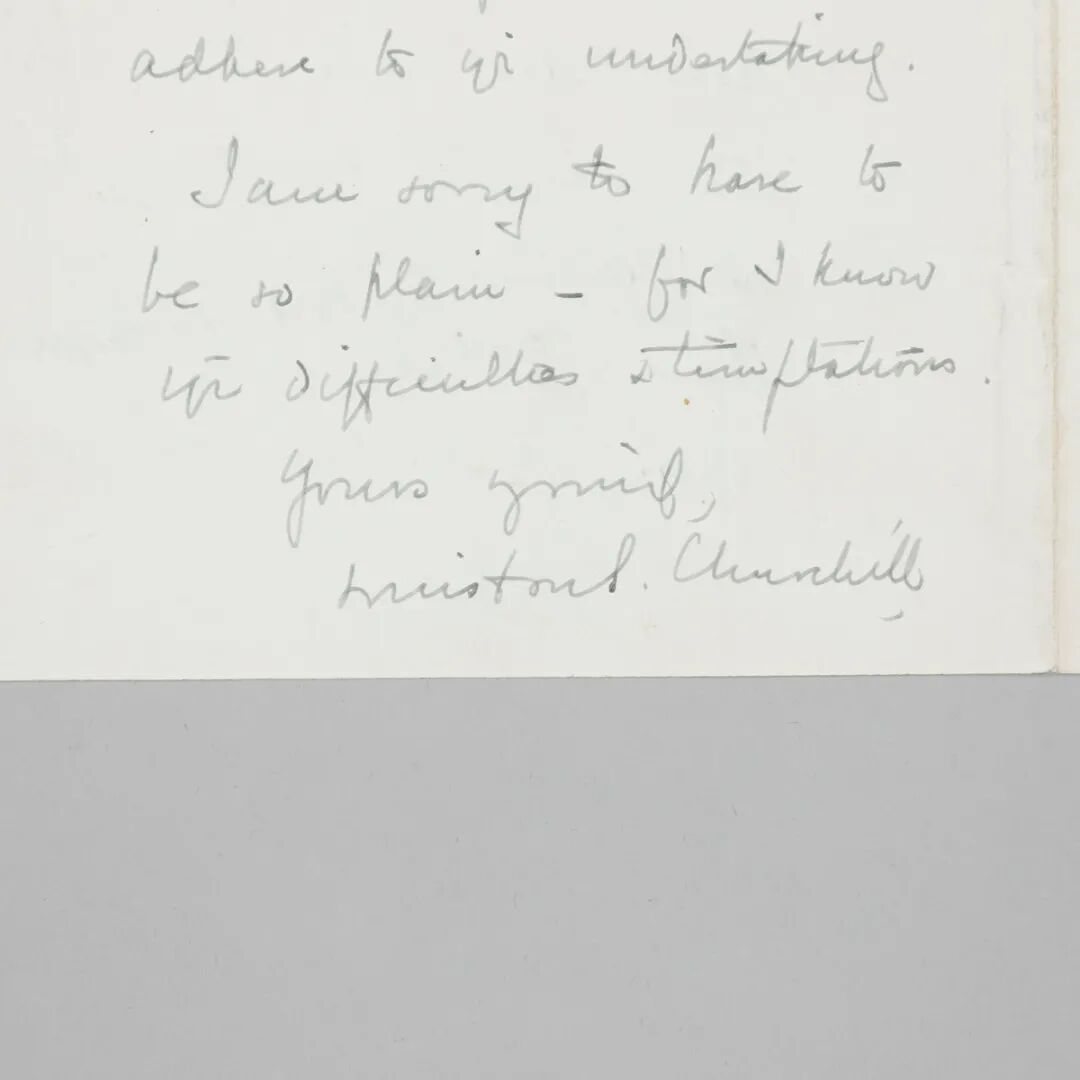 adhere to yr undertaking.
I am sorry to have to
be so plain – for I know
yr difficulties & temptations.
Yours
Winston S. Churchill